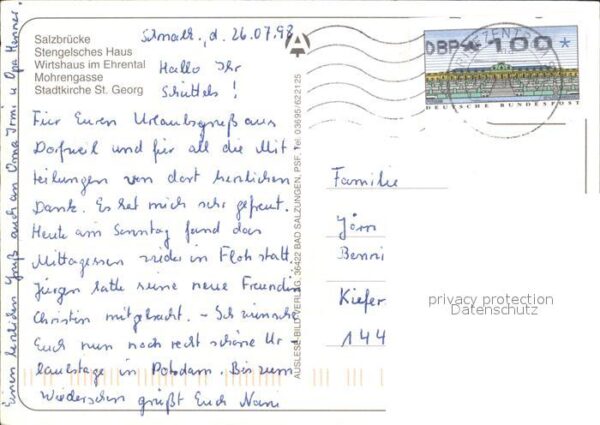 Salzbrücke
Stengelsches Haus
Wirtshaus im Ehrental
Mohrengasse
Stadtkirche St. Georg
Schmalk., d. 26.07.98
Hallo Ihr
Schüttels!
Für Euren Urlaubsgruß aus
Dorfweil und für all die Mit
teilungen von dort herzlichen
Dank. Es hat mich sehr gefreut.
Heute am Sonntag fand das
Mittagessen wieder in Floh statt.
Jürgen hatte seine neue Freundin
Christin mitgebracht. – Ich wünsche
Euch nun noch recht schöne Ur
laubstage in Potsdam. Bis zum
Wiedersehen grüßt Euch Nani
Einen herzlichen Gruß auch an Oma Irmi u. Opa Henner.
AUSLESE-BILD-VERLAG, 36422 BAD SALZUNGEN, PSF, Tel. 03695/622125
A
DBP 100 *
DEUTSCHE BUNDESPOST
BRIEFZENTRUM
Familie
Jörn
Benni
Kiefer
144
privacy protection
Datenschutz